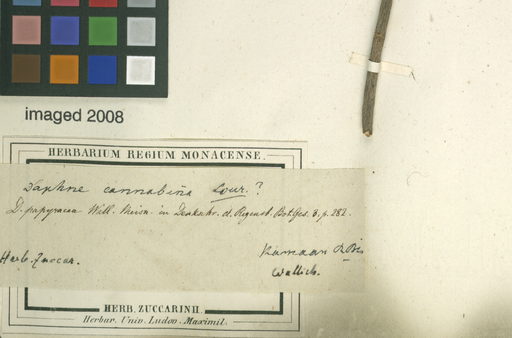 imaged 2008
HERBARIUM REGIUM MONACENSE.
Daphne cannabina Lour.?
D. papyracea Wall. Meisn. in Denkschr. d. Regensb. Bot. Ges. 3, p. 282.
Herb. Zuccar.
Kamaon
Wallich.
HERB. ZUCCARINII.
Herbar. Univ. Ludov. Maximil.